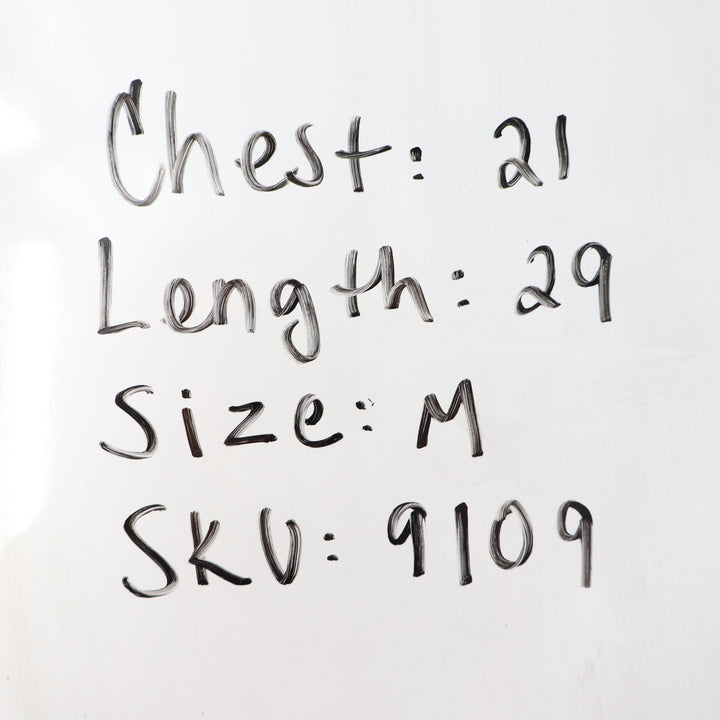 Chest: 21
Length: 29
Size: M
SKU: 9109